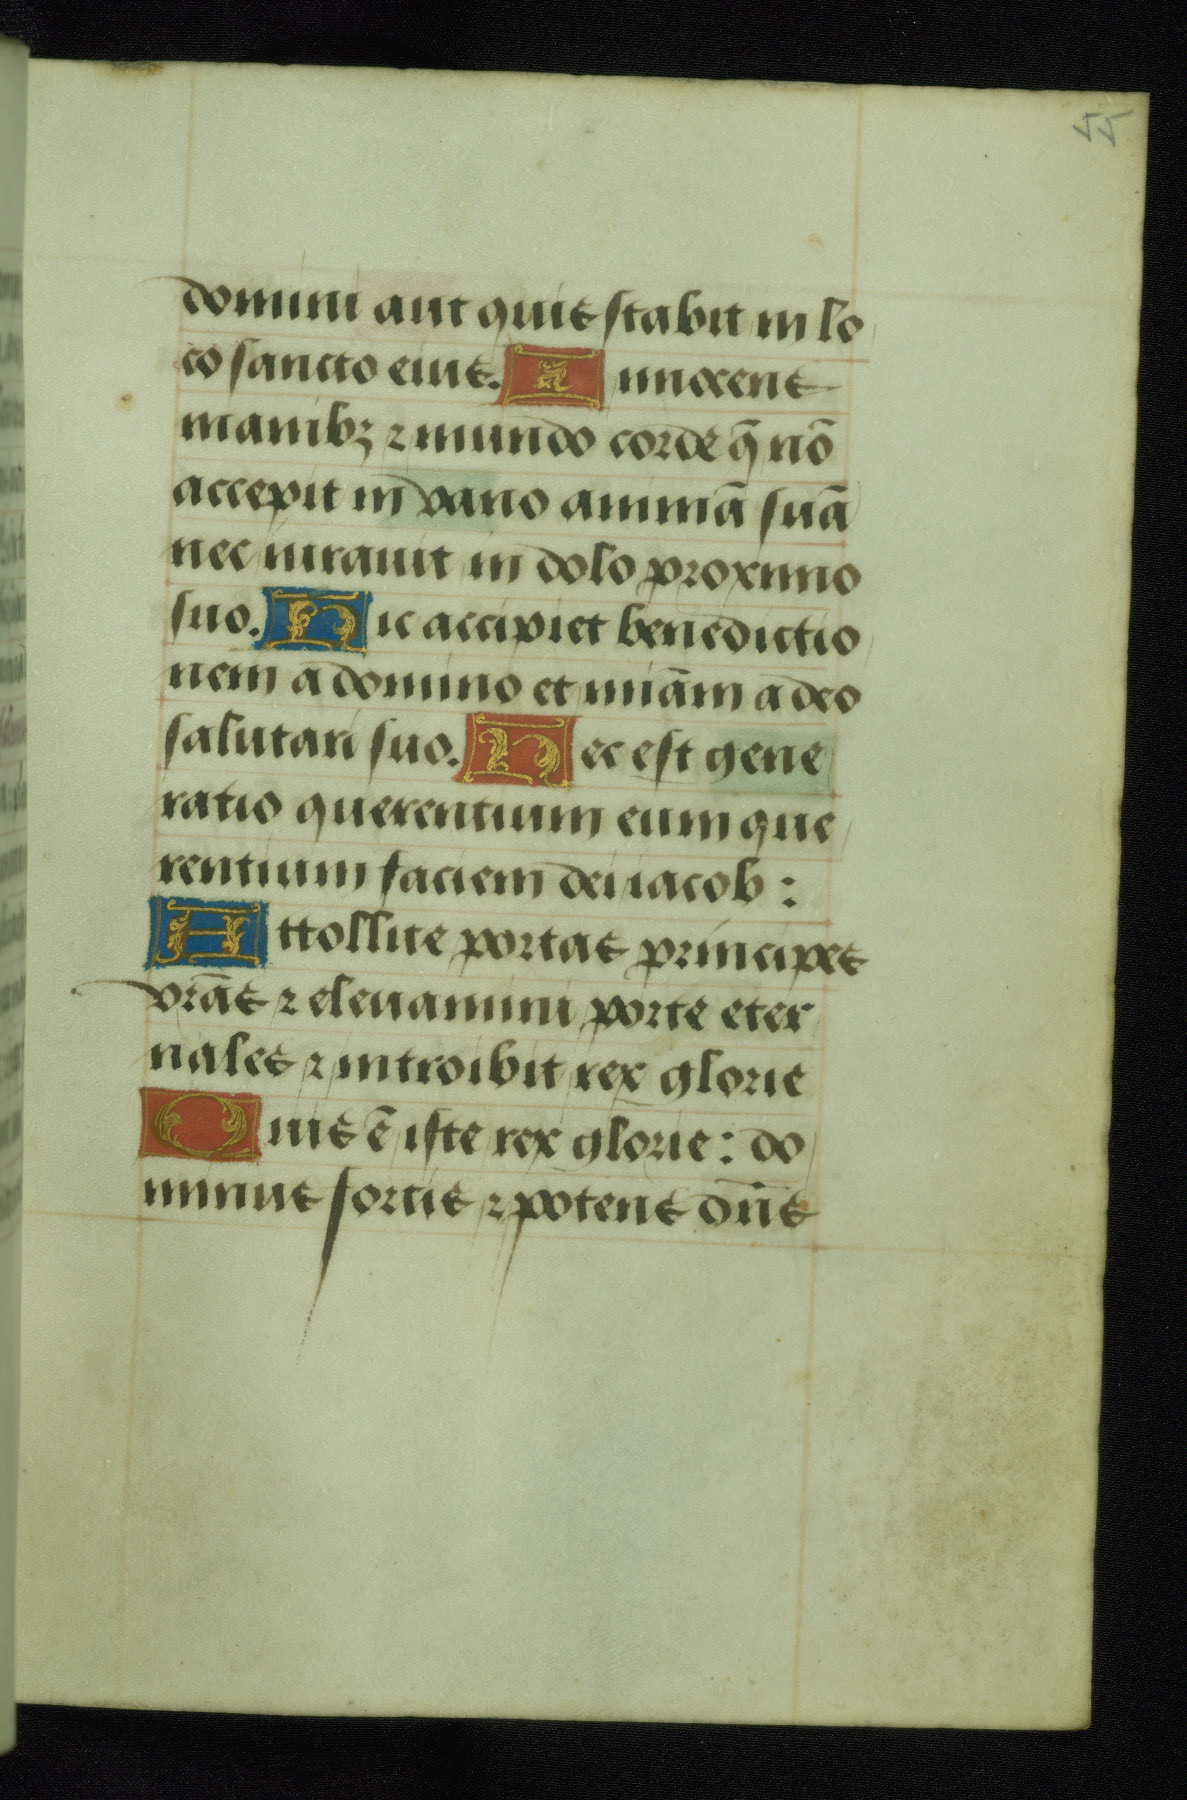 55
domini aut quis stabit in lo
co sancto eius. Innocens
manibꝫ ⁊ mundo corde q̄ nō
accepit in vano animā suā
nec iurauit in dolo proximo
suo. Hic accipiet benedictio
nem a domino et miām a deo
salutari suo. Hec est gene
ratio querentium eum que
rentium faciem dei iacob :
Attollite portas principes
vrās ⁊ eleuamini porte eter
nales ⁊ introibit rex glorie
Quis ē iste rex glorie : do
minus fortis ⁊ potens dn̄s